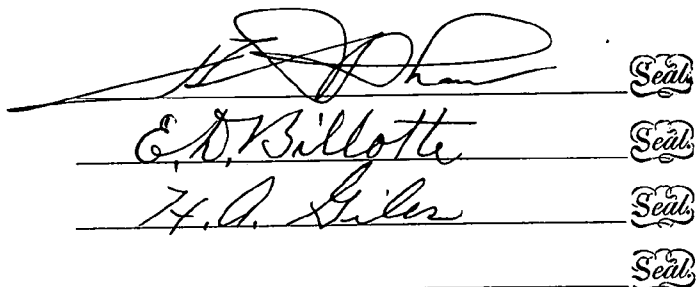 Seal.
E. D. Billotte Seal.
H. A. Giles Seal.
Seal.